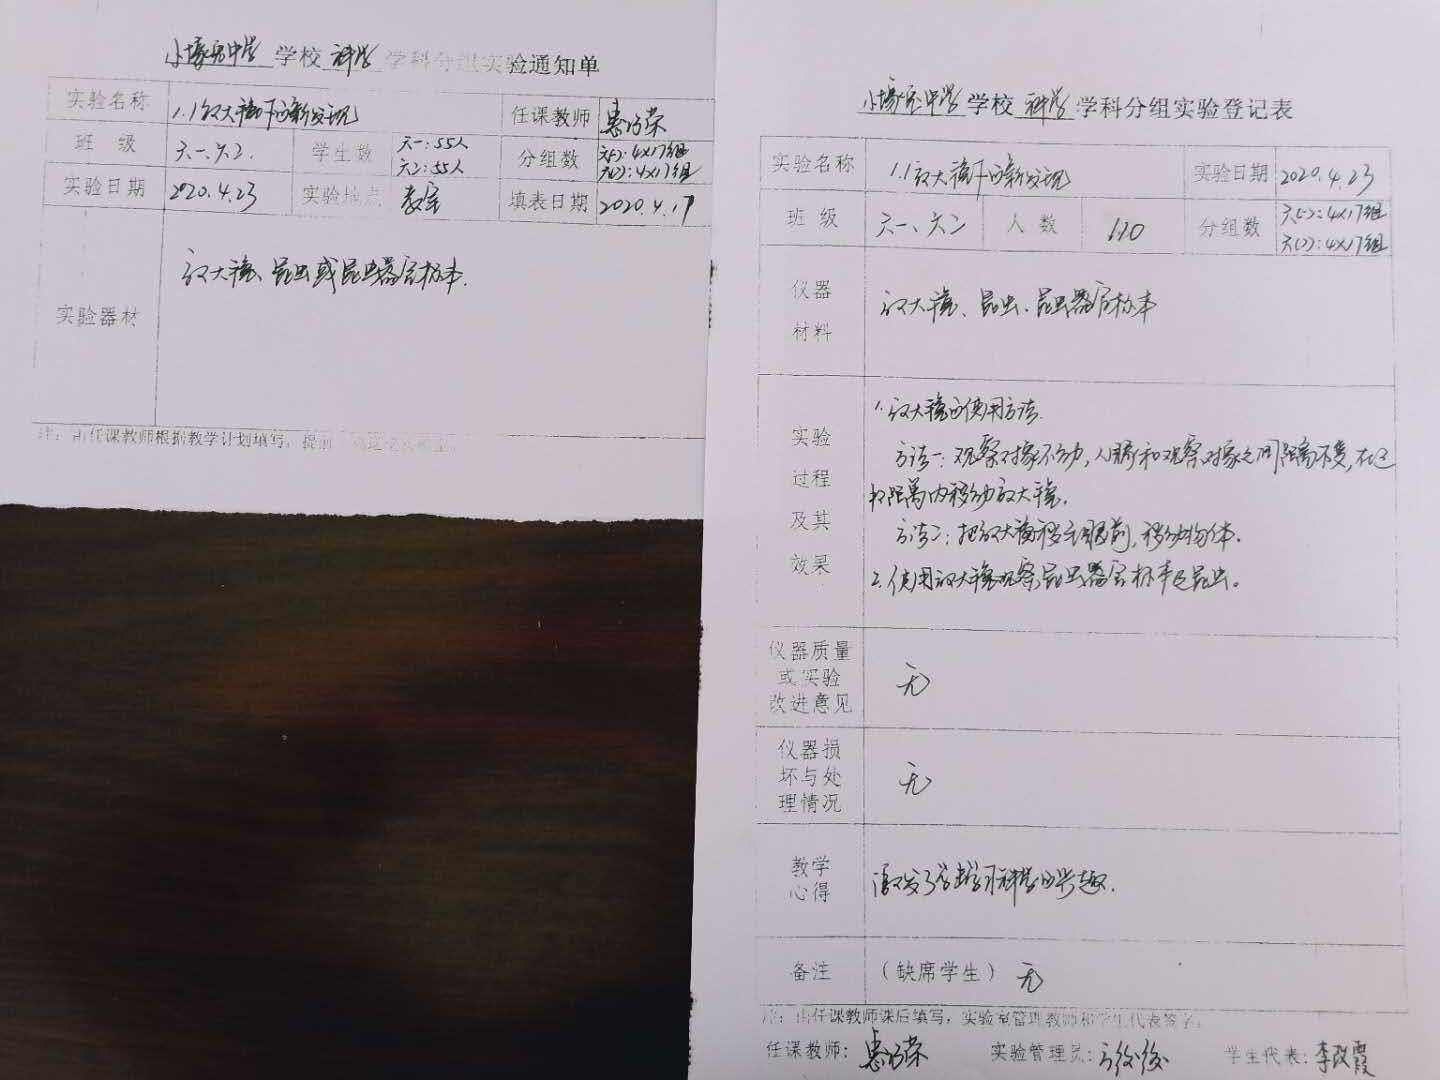 学校 科学 学科分组实验通知单
实验名称 1.1放大镜下的新发现 任课教师
班 级 六一、六二. 学生数 六一:55人 六二:55人 分组数 六(一):4×17组 六(二):4×17组
实验日期 2020.4.23 实验地点 教室 填表日期 2020.4.17
实验器材 放大镜、昆虫或昆虫器官标本.
注：由任课教师根据教学计划填写，提前
学校 科学 学科分组实验登记表
实验名称 1.1放大镜下的新发现 实验日期 2020.4.23
班 级 六一、六二 人 数 110 分组数 六(一):4×17组 六(二):4×17组
仪器材料 放大镜、昆虫、昆虫器官标本
实验过程及其效果
1.放大镜的使用方法.
方法一:观察对象不动,人眼和观察对象之间距离不变,在这
段距离内移动放大镜.
方法二:把放大镜移至眼前,移动物体.
2.使用放大镜观察昆虫器官标本及昆虫。
仪器质量或实验改进意见 无
仪器损坏与处理情况 无
教学心得 激发了学生学习科学的兴趣.
备注 （缺席学生） 无
注：由任课教师课后填写，实验室管理教师和学生代表签字。
任课教师: 实验管理员: 学生代表: 李改霞